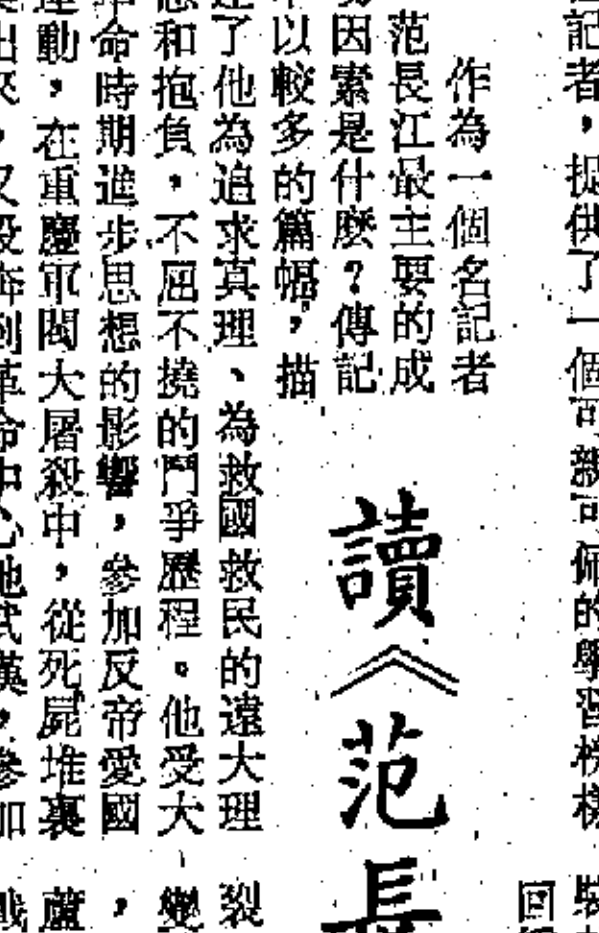 記者，提供了一個可親可佩的學習榜樣
讀《范長
作為一個名記者
范長江最主要的成
因素是什麼？傳記
以較多的篇幅，描
了他為追求真理、為救國救民的遠大理
和抱負，不屈不撓的鬥爭歷程。他受大
命時期進步思想的影響，參加反帝愛國
動，在重慶軍閥大屠殺中，從死屍堆裏
出來，又投奔到革命中心地武漢，參加
回
裂
，
蘆